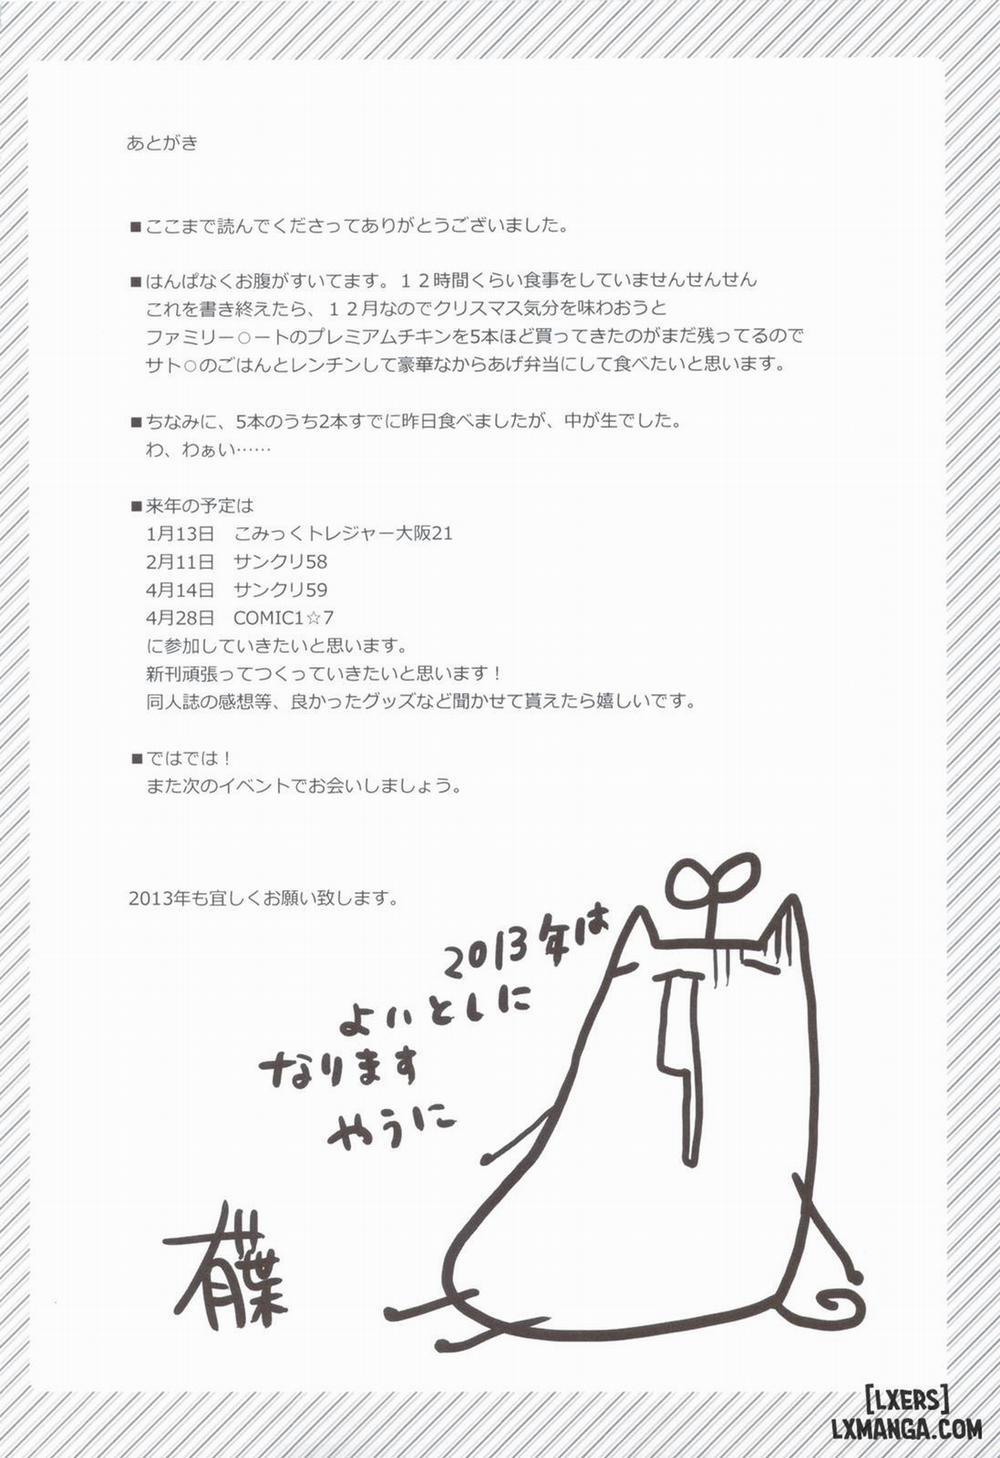 あとがき
■ここまで読んでくださってありがとうございました。
■はんぱなくお腹がすいてます。１２時間くらい食事をしていませんせんせん
これを書き終えたら、１２月なのでクリスマス気分を味わおうと
ファミリー○ートのプレミアムチキンを5本ほど買ってきたのがまだ残ってるので
サト○のごはんとレンチンして豪華なからあげ弁当にして食べたいと思います。
■ちなみに、5本のうち2本すでに昨日食べましたが、中が生でした。
わ、わぁい……
■来年の予定は
1月13日　こみっくトレジャー大阪21
2月11日　サンクリ58
4月14日　サンクリ59
4月28日　COMIC1☆7
に参加していきたいと思います。
新刊頑張ってつくっていきたいと思います！
同人誌の感想等、良かったグッズなど聞かせて貰えたら嬉しいです。
■ではでは！
また次のイベントでお会いしましょう。
2013年も宜しくお願い致します。
2013年は
よいとしに
なります
やうに
有葉
[LXERS]
LXMANGA.COM